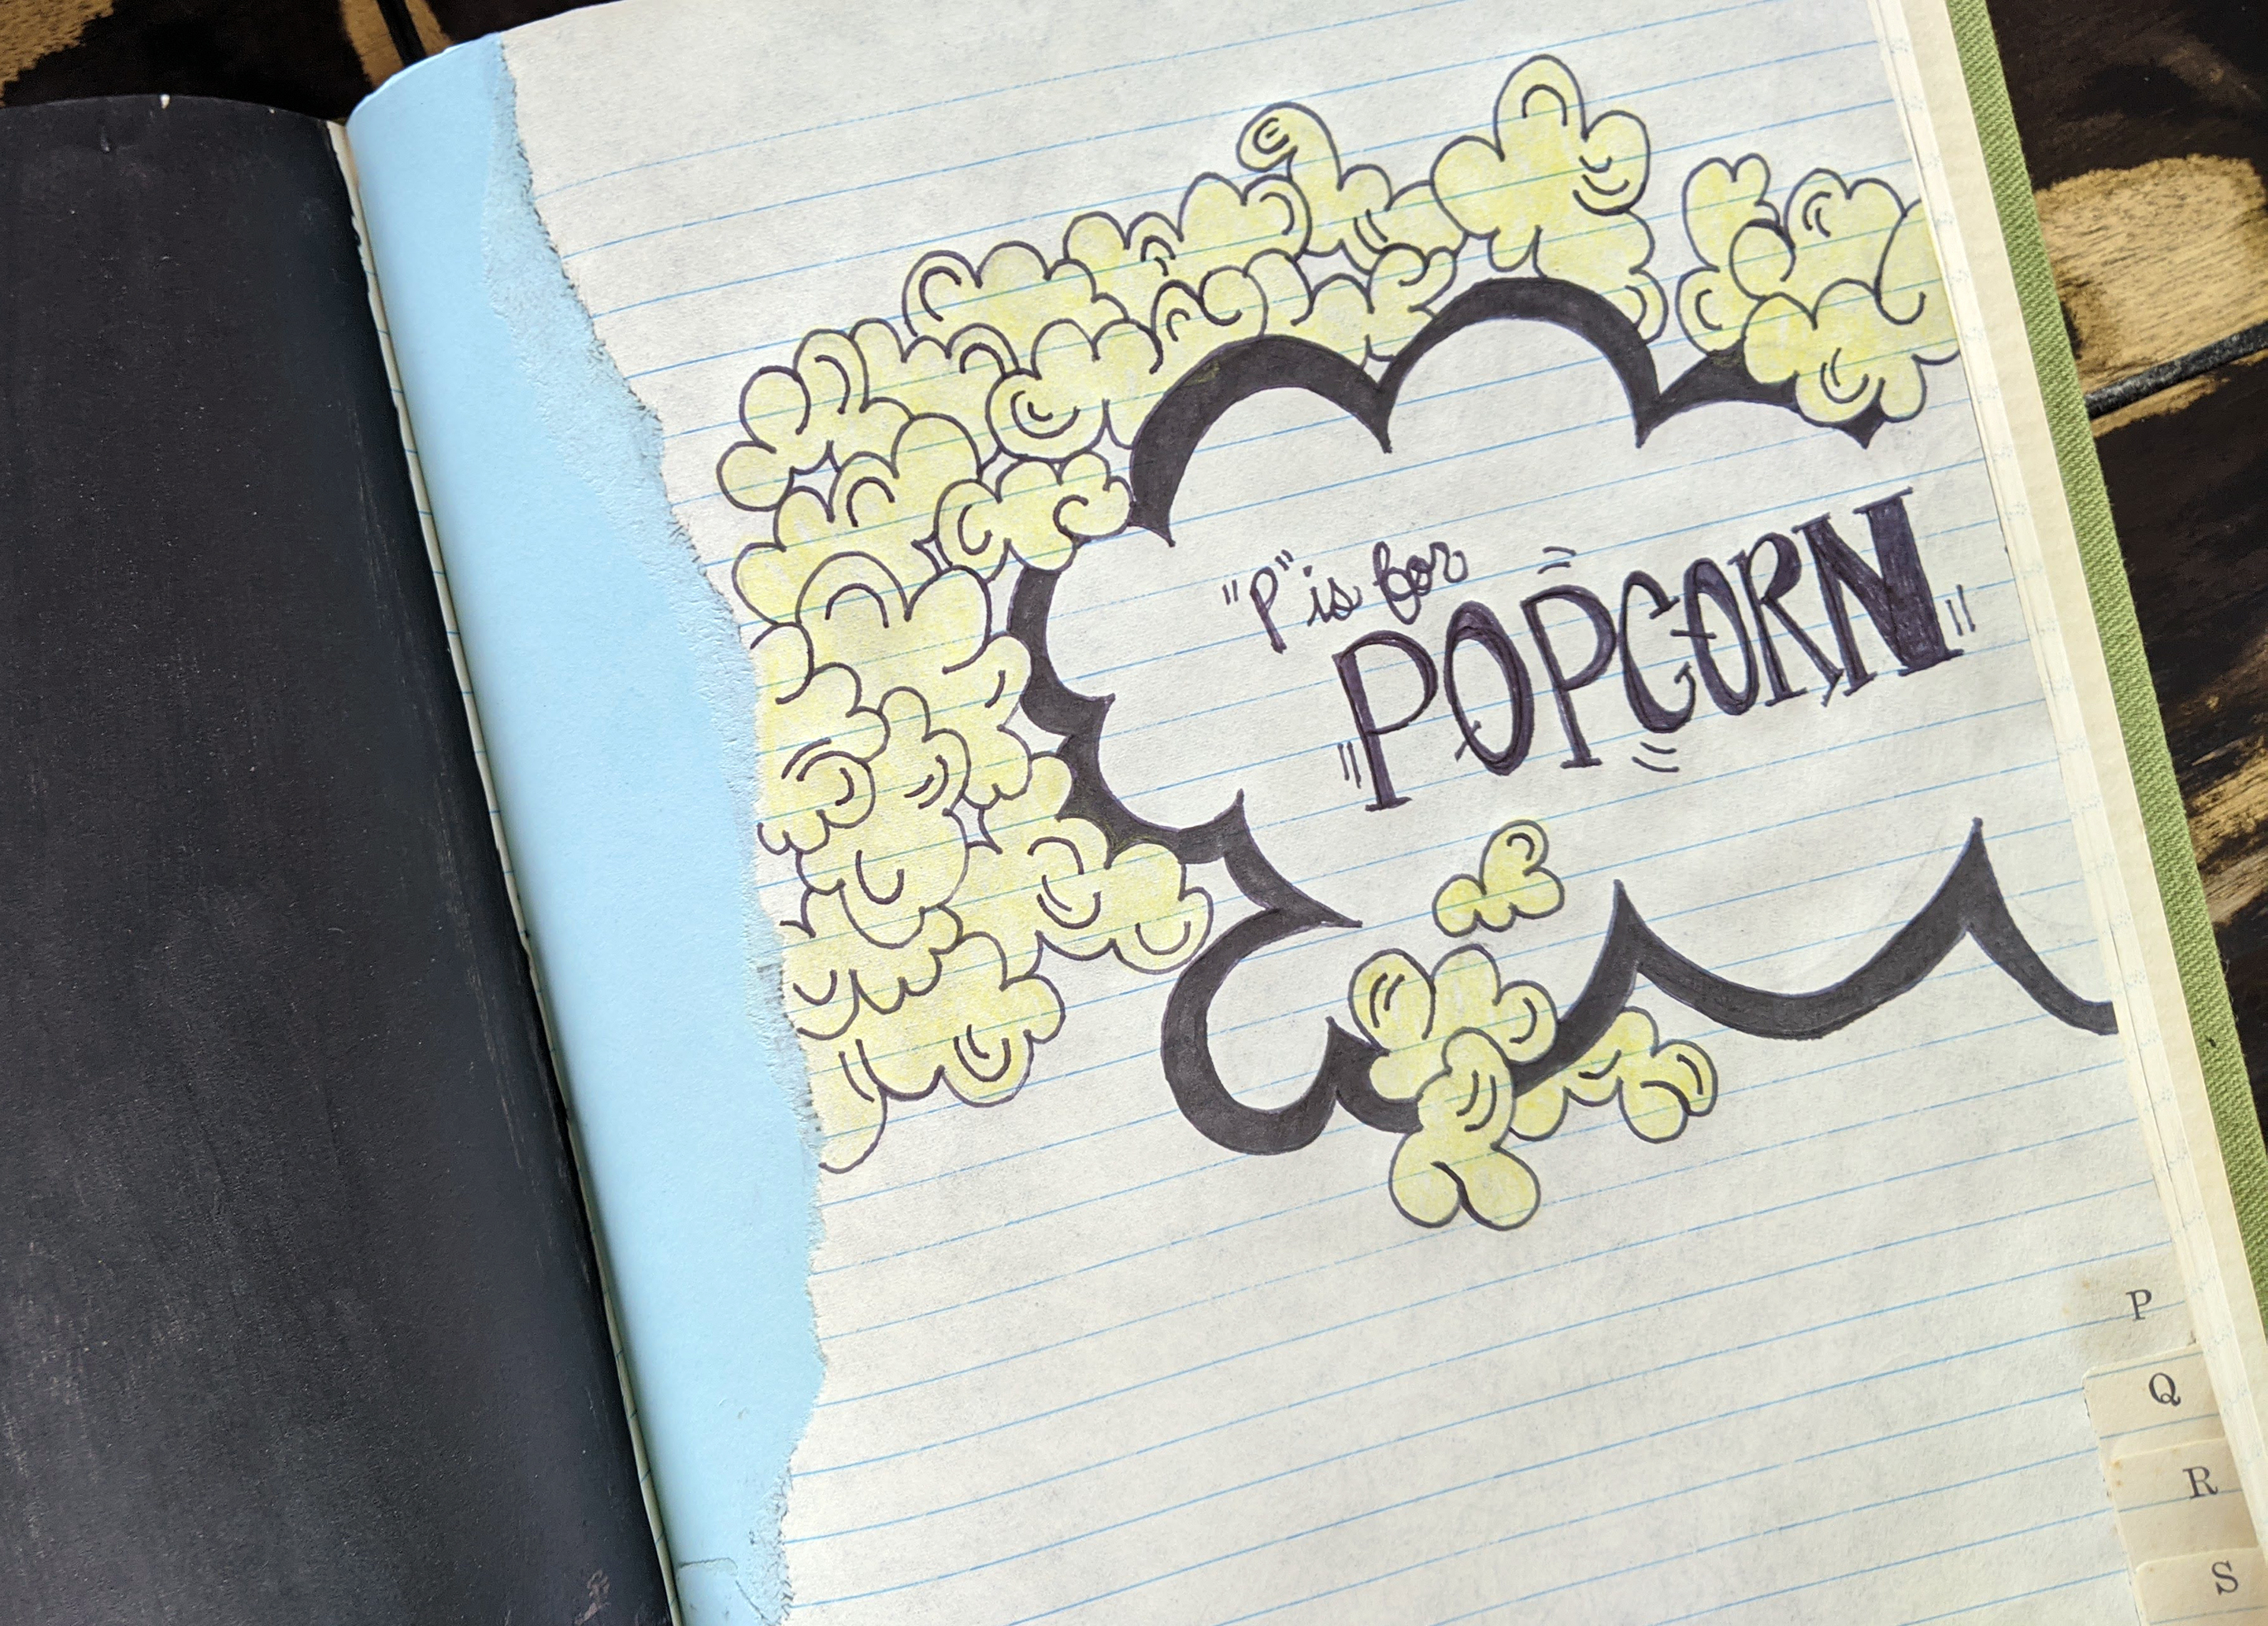 "P" is for
POPCORN
P
Q
R
S